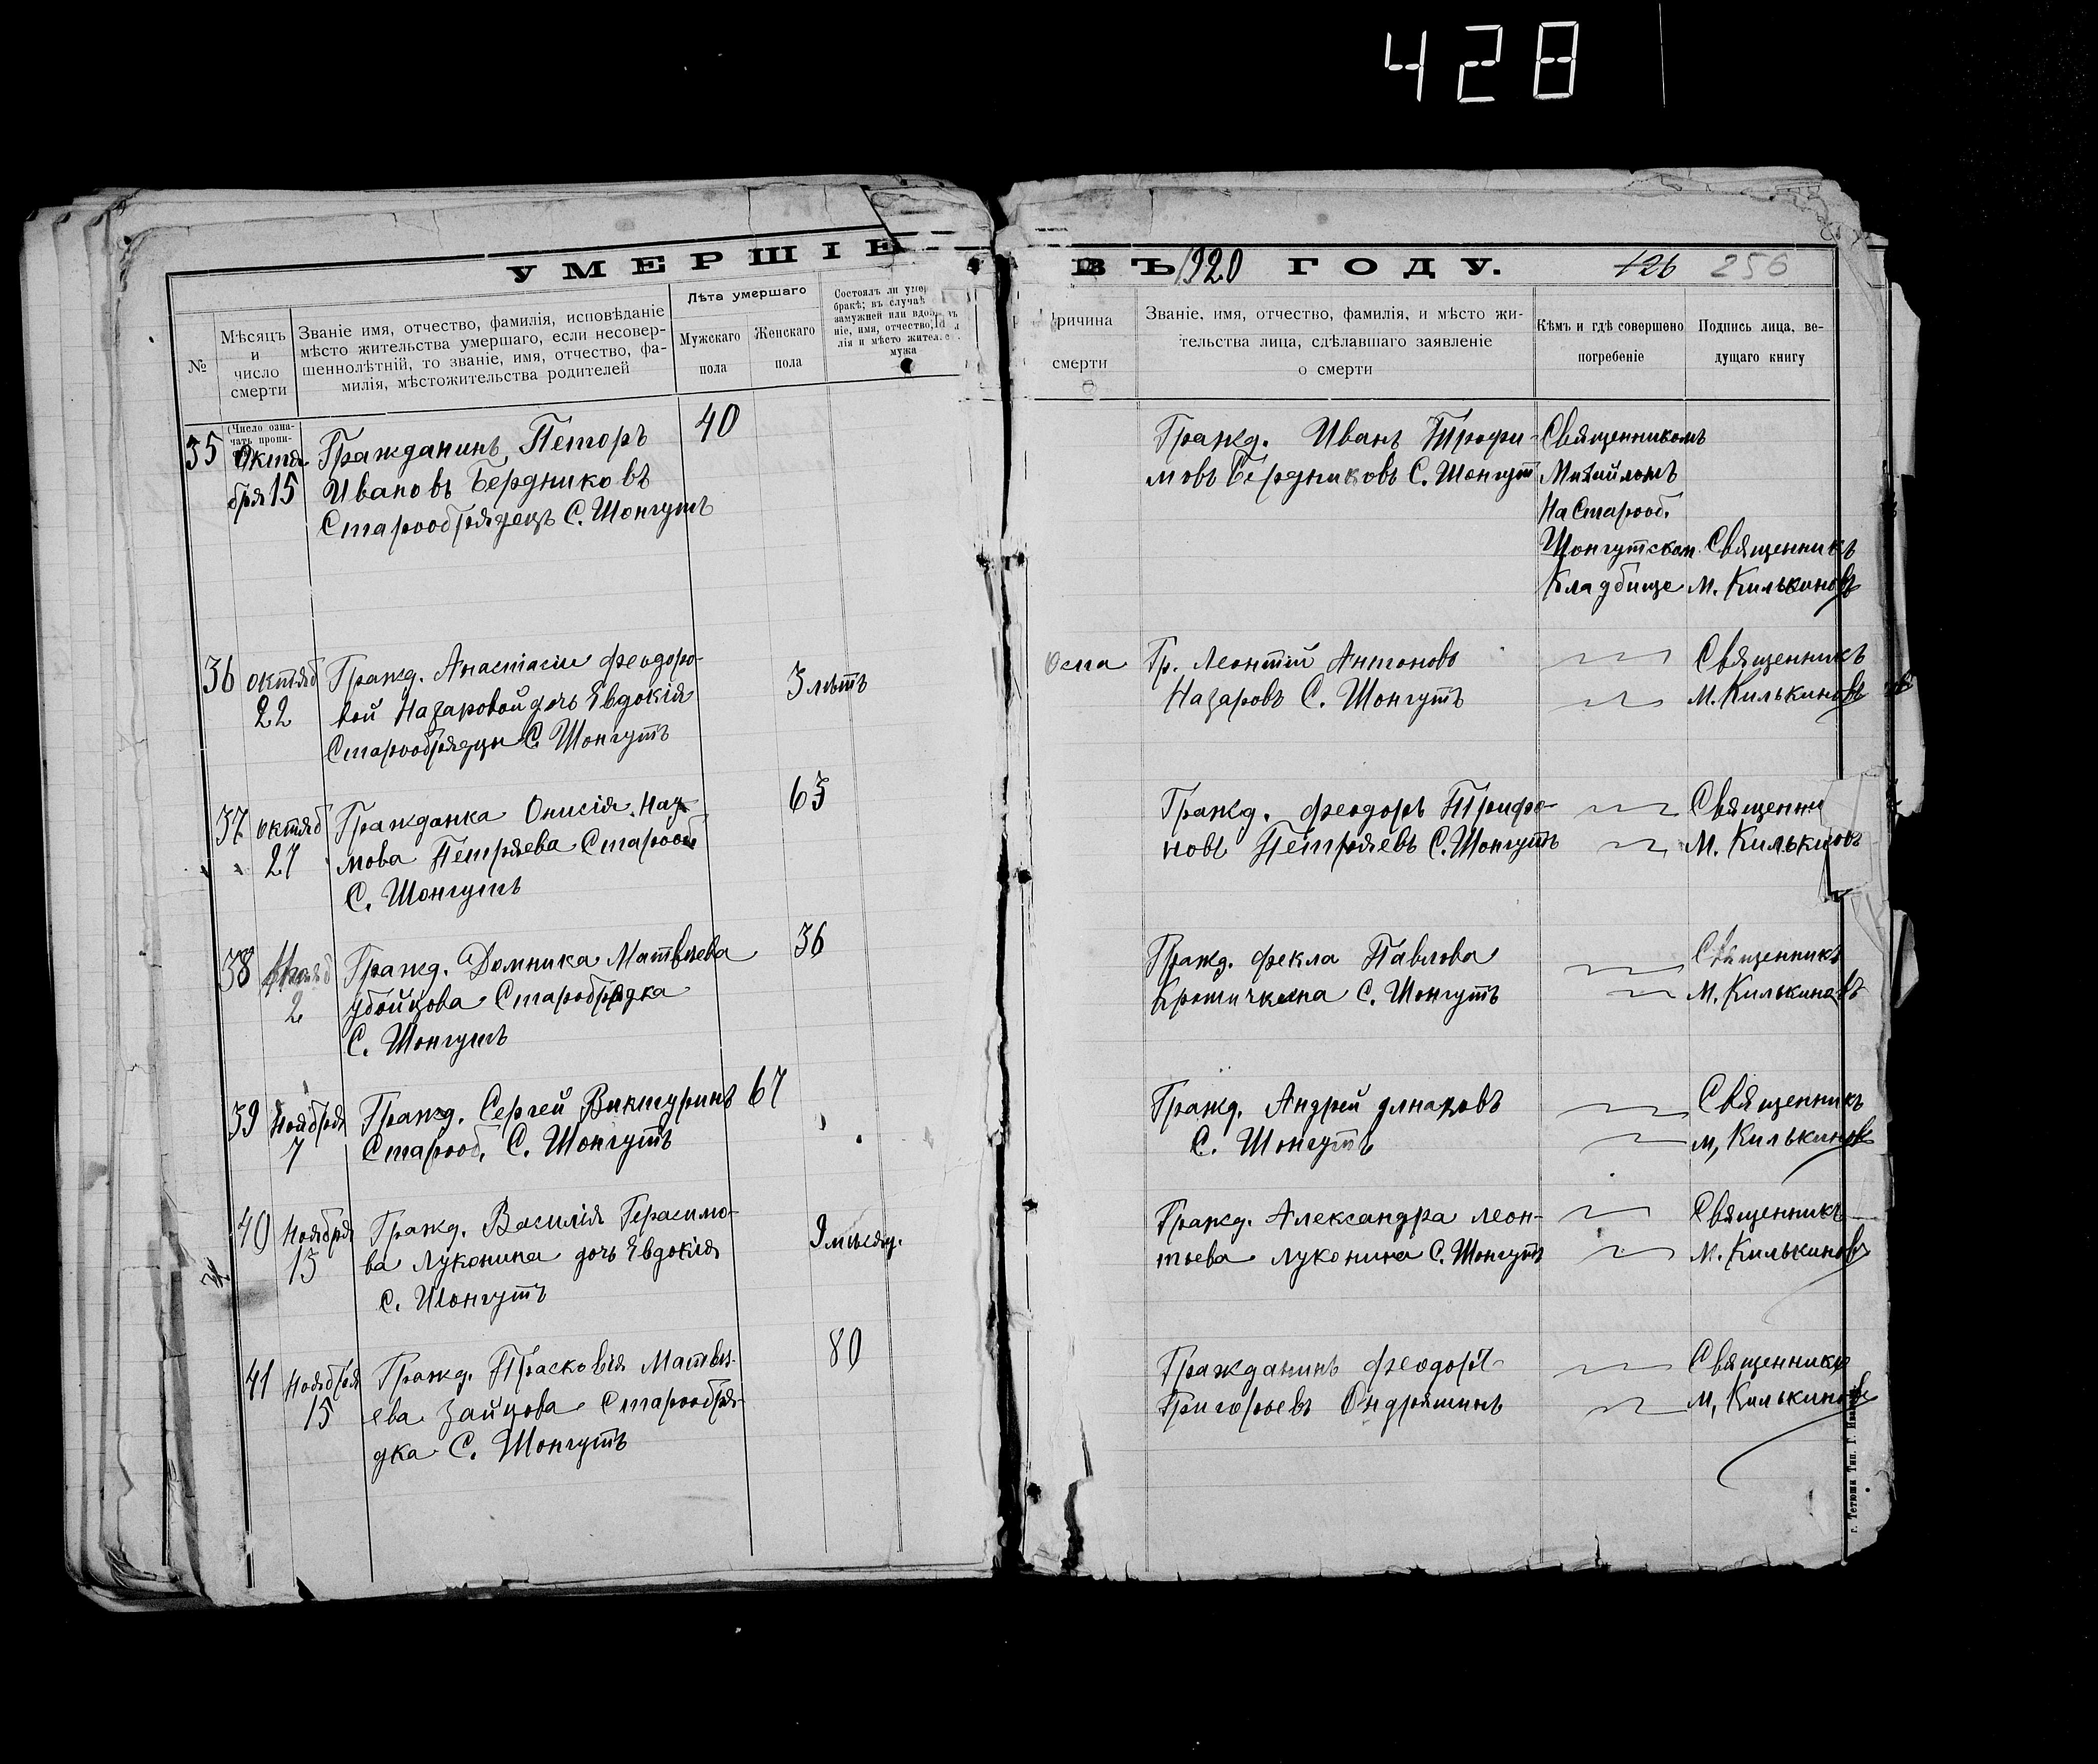 428
УМЕРШІЕ
ВЪ 1920 ГОДУ.
126 256
№
Мѣсяцъ
и
число
смерти
Званіе имя, отчество, фамилія, исповѣданіе
мѣсто жительства умершаго, если несовер-
шеннолѣтній, то званіе, имя, отчество, фа-
милія, мѣстожительства родителей
Лѣта умершаго
Мужскаго
пола
Женскаго
пола
Состоялъ ли умер
бракѣ; въ случаѣ
замужней или вдов
ніе, имя, отчество,
лія и мѣсто жител
мужа
Причина
смерти
Званіе, имя, отчество, фамилія, и мѣсто жи-
тельства лица, сдѣлавшаго заявленіе
о смерти
Кѣмъ и гдѣ совершено
погребеніе
Подпись лица, ве-
дущаго книгу
(Число озна-
чать пропи-
35
Октя-
бря 15
Гражданинъ Петоръ
Ивановъ Бердниковъ
Старообрядецъ С. Шонгутъ
40
Гражд. Иванъ Трофи-
мовъ Бердниковъ С. Шонгут
Священникомъ
Михаиломъ
На Старооб.
Шонгутском
Кладбище
Священникъ
М. Килькиновъ
36
октяб
22
Гражд. Анастасіи Феодоро-
вой Назаровой дочь Евдокія
Старообрядцы С. Шонгутъ
3 лѣтъ
Оспа
Гр. Леонтій Антоновъ
Назаровъ С. Шонгутъ
Священникъ
М. Килькиновъ
37
октяб
27
Гражданка Онисія Нау-
мова Петряева Старооб
С. Шонгутъ
63
Гражд. Феодоръ Трифо-
новъ Петряевъ С. Шонгутъ
Священни
М. Килькиновъ
38
2
Гражд. Домника Матвѣева
Убойцова Старобрядка
С. Шонгутъ
36
Гражд. Фекла Павлова
С. Шонгутъ
Священникъ
М. Килькиновъ
39
Ноября
7
Гражд. Сергей Виктуринъ
Старооб. С. Шонгутъ
67
Гражд. Андрей
С. Шонгутъ
Священникъ
М, Килькиновъ
40
Ноября
13
Гражд. Василія Герасимо-
ва Луконина дочь Евдокія
С. Шонгутъ
9 мѣсяц.
Гражд. Александра Леон-
тьева Луконина С. Шонгутъ
Священникъ
М. Килькиновъ
41
Ноября
15
Гражд. Прасковія Матвѣ-
ева Зайцова Старообря-
дка С. Шонгутъ
80
Гражданинъ Феодоръ
Григорьевъ Ондряшинъ
Священникъ
М, Килькиновъ
г. Тетюши Тип. Г.